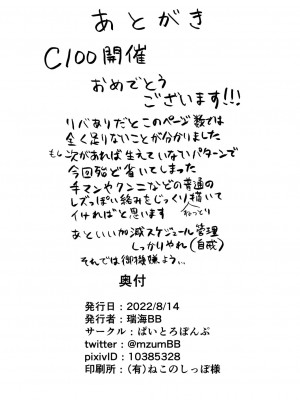 あとがき
C100開催
おめでとう
ございます!!!
リバありだとこのページ数では
全く足りないことが分かりました
もし次があれば生えていないパターンで
今回殆ど省いてしまった
手マンやクンニなどの普通の
レズっぽい絡みをじっくり描いて
ねっとり
イければと思います
あといい加減スケジュール管理
しっかりやれ(自戒)
それでは御機嫌よう、、
奥付
発行日:2022/8/14
発行者:瑞海BB
サークル:ぱいとろぼんぷ
twitter:@mzumBB
pixivID:10385328
印刷所:(有)ねこのしっぽ様